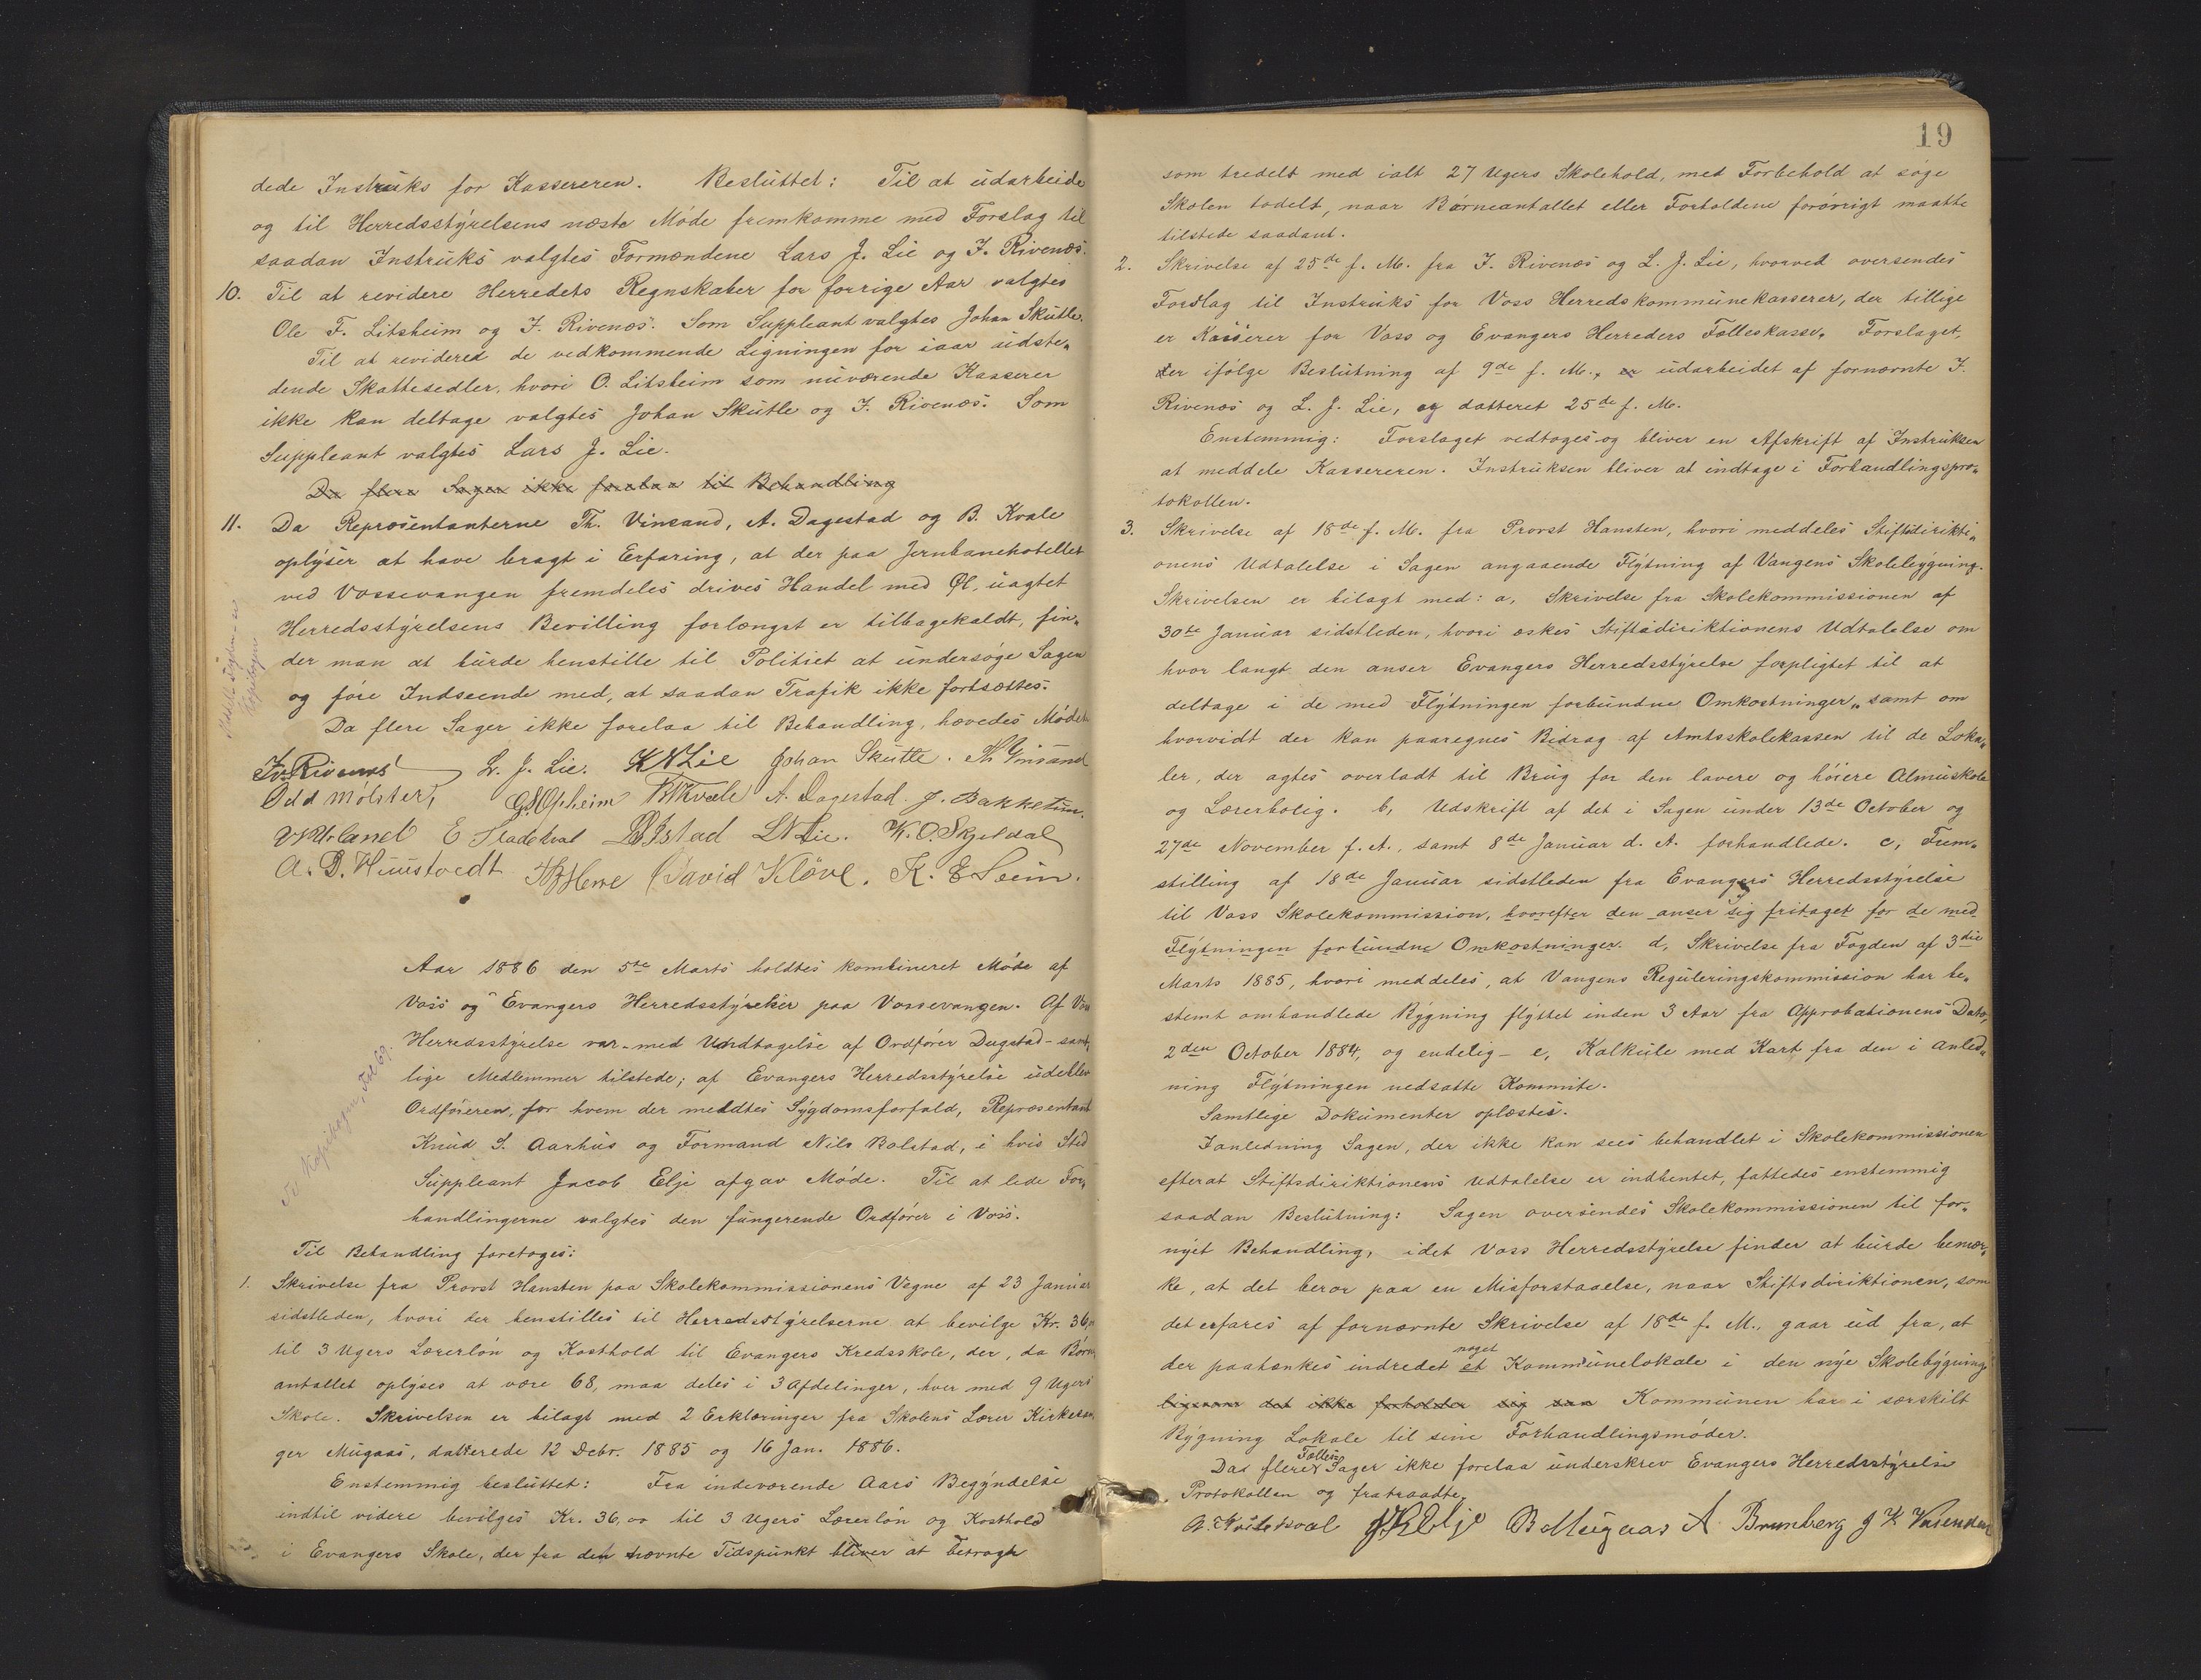 dede Instruks for Kassereren. Besluttet: Til at udarbeide
og til Herredsstyrelsens næste Møde fremkomme med Forslag til
saadan Instruks valgtes Formændene Lars J. Lie og I. Rivenæs.
10. Til at revidere Herredets Regnskaber for forrige Aar valgtes
Ole T. Litsheim og I. Rivenæs. Som Suppleant valgtes Johan Skutle.
Til at revidered de vedkommende Ligningen for iaar udste„
dende Skattesedler, hvori O. Litsheim som nuværende Kasserer
ikke kan deltage valgtes Johan Skutle og I. Rivenæs. Som
Suppleant valgtes Lars J. Lie.
Da flere Sager ikke forelaa til Behandling
11. Da Repræsentanterne Th. Vinsand, A. Dagestad og B. Kvale
oplyser at have bragt i Erfaring, at der paa Jernbanehotellet
ved Vossevangen fremdeles drives Handel med Øl, uagtet
Herredsstyrelsens Bevilling forlængst er tilbagekaldt, fin„
der man at burde henstille til Politiet at undersøge Sagen
og føre Indseende med, at saadan Trafik ikke fortsættes.
Da flere Sager ikke forelaa til Behandling, hævedes Mødet.
Iv. Rivenæs L. J. Lie. K N Lie Johan Skutle. Th Vinsand
Odd Mølster, G.S. Opheim B Kvale A. Dagestad. J. Bakketun.
E Stadskval L N Lie. K. O. Skjeldal
A. D. Huustvedt David Kløve. K. E Seim.
Aar 1886 den 5te Marts holdtes kombineret Møde af
Voss og Evangers Herredsstyrelser paa Vossevangen. Af Voss
Herredsstyrelse var - med Undtagelse af Ordfører Dugstad - samt„
lige Medlemmer tilstede; af Evangers Herredsstyrelse udeblev
Ordføreren, for hvem der meldtes Sygdomsforfald, Repræsentant
Knud S. Aarhus og Formand Nils Bolstad, i hvis Sted
Suppleant Jacob Elje afgav Møde. Til at lede For„
handlingerne valgtes den fungerende Ordfører i Voss.
Til Behandling foretoges:
1. Skrivelse fra Provst Hansten paa Skolekommissionens Vegne af 23 Januar
sidstleden, hvori der henstilles til Herredsstyrelserne at bevilge Kr. 36,
til 3 Ugers Lærerløn og Kosthold til Evangers Kredsskole, der, da Børne
antallet oplyses at være 68, maa deles i 3 Afdelinger, hver med 9 Ugers
Skole. Skrivelsen er bilagt med 2 Erklæringer fra Skolens Lærer Kirkesan
ger Mugaas, datterede 12 Debr. 1885 og 16 Jan. 1886.
Enstemmig besluttet: Fra indeværende Aars Begyndelse
indtil videre bevilges Kr. 36,00 til 3 Ugers Lærerløn og Kosthold
i Evangers Skole, der fra den nævnte Tidspunkt bliver at betragte
19
som tredelt med ialt 27 Ugers Skolehold, med Forbehold at søge
Skolen todelt, naar Børneantallet eller Forholdene forøvrigt maatte
tilstede saadant.
2. Skrivelse af 25de f. M. fra I. Rivenæs og L. J. Lie, hvorved oversendes
Forslag til Instruks for Voss Herredskommunekasserer, der tillige
er Kasserer for Voss og Evangers Herreders Fælleskasse. Forslaget,
der ifølge Beslutning af 9de f. M., er udarbeidet af fornævnte I.
Rivenæs og L. J. Lie, og datteret 25de f. M.
Enstemmig: Forslaget vedtoges og bliver en Afskrift af Instruksen
at meddele Kassereren. Instruksen bliver at indtage i Forhandlingspro„
tokollen.
3. Skrivelse af 18de f. M. fra Provst Hansten, hvori meddeles Stiftsdirikti„
onens Udtalelse i Sagen angaaende Flytning af Vangens Skolebygning.
Skrivelsen er bilagt med: a, Skrivelse fra Skolekommissionen af
30te Januar sidstleden, hvori æskes Stiftsdiriktionens Udtalelse om
hvor langt den anser Evangers Herredsstyrelse forpligtet til at
deltage i de med Flytningen forbundne Omkostninger„ samt om
hvorvidt der kan paaregnes Bidrag af Amtsskolekassen til de Loka„
ler, der agtes overladt til Brug for den lavere og høiere Almuskole
og Lærerbolig. b, Udskrift af det i Sagen under 13de October og
27de November f. A., samt 8de Januar d. A. forhandlede. c, Frem„
stilling af 18de Januar sidstleden fra Evangers Herredsstyrelse
til Voss Skolekommission, hvorefter den anser sig fritaget for de med
Flytningen forbundne Omkostninger. d, Skrivelse fra Fogden af 3die
Marts 1885, hvori meddeles, at Vangens Reguleringskommission har be„
stemt omhandlede Bygning flyttet inden 3 Aar fra Approbationens Dato,
2den October 1884, og endelig - e, Kalkule med Kart fra den i Anled„
ning Flytningen nedsatte Kommite.
Samtlige Dokumenter oplæstes.
Ianledning Sagen, der ikke kan sees behandlet i Skolekommissionen
efterat Stiftsdiriktionens Udtalelse er indhentet, fattedes enstemmig
saadan Beslutning: Sagen oversendes Skolekommissionen til for„
nyet Behandling, idet Voss Herredsstyrelse finder at burde bemær„
ke, at det beror paa en Misforstaaelse, naar Stiftsdiriktionen, som
det erfares af fornævnte Skrivelse af 18de f. M., gaar ud fra, at
der paatænkes indredet noget et Kommunelokale i den nye Skolebygning
ligesom det ikke forholder sig saa Kommunen har i særskilt
Bygning Lokale til sine Forhandlingsmøder.
Da flere Fælles Sager ikke forelaa underskrev Evangers Herredsstyrelse
Protokollen og fratraadte.
J K Elje B Mugaas A Brunberg